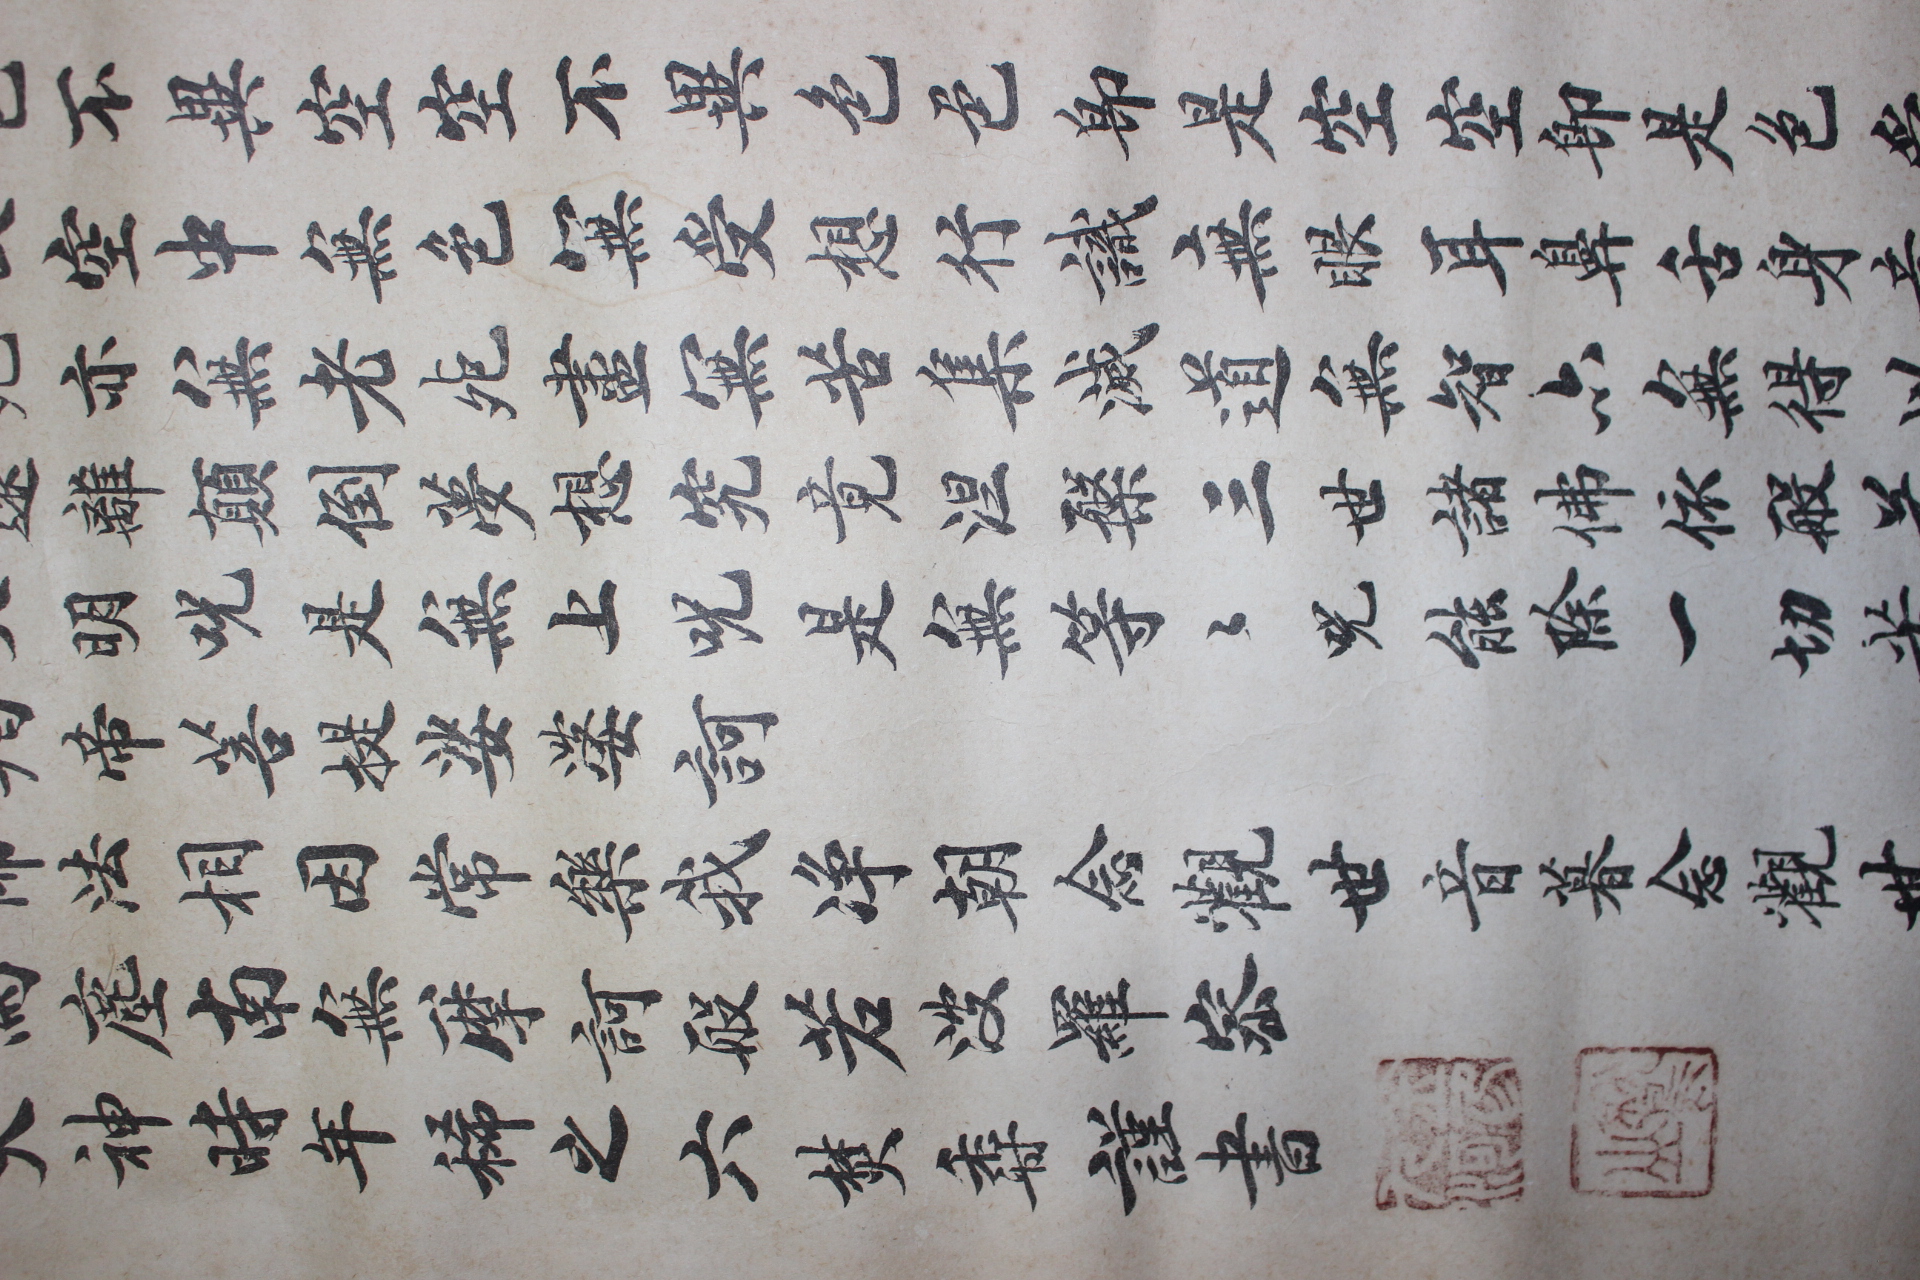 色不異空空不異色色即是空空即是色受
空中無色無受想行識無眼耳鼻舌身意
死亦無老死盡無苦集滅道無智亦無得以
遠離顛倒夢想究竟涅槃三世諸佛依般若
大明呪是無上呪是無等〻呪能除一切苦
帝菩提娑婆訶
佛法相因常樂我淨朝念觀世音暮念觀世
塵南無摩訶般若波羅蜜
神時年稀之六焚香謹書